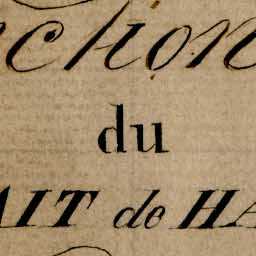 ction
du
AIT de HA